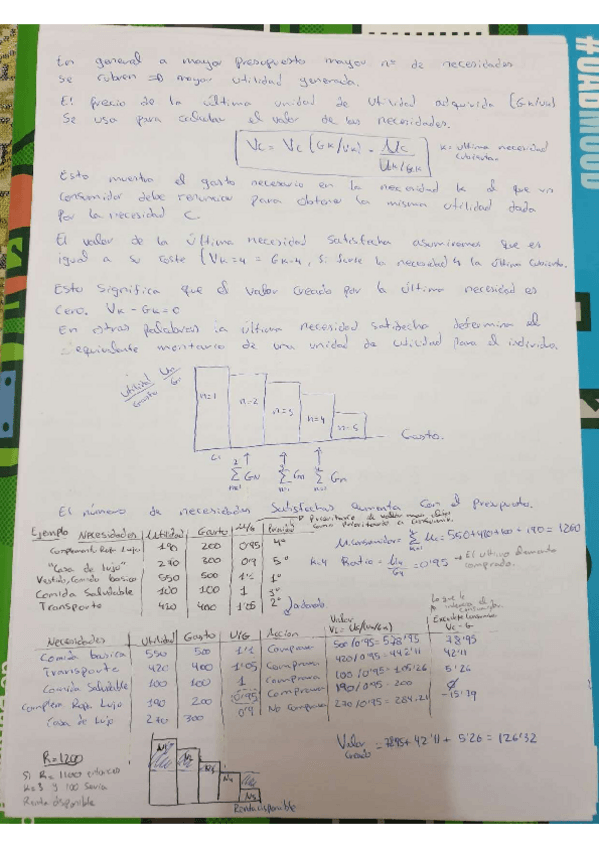 En general a mayor presupuesto mayor nº de necesidades
se cubren => mayor utilidad generada.
El precio de la última unidad de utilidad adquirida (Gk/Uk)
se usa para calcular el valor de las necesidades.
Vc = Vc (Gk/Uk) = Uc / (Uk/Gk)
k = ultima necesidad cubierta
Esto muestra el gasto necesario en la necesidad k al que un
consumidor debe renunciar para obtener la misma utilidad dada
por la necesidad C.
El valor de la última necesidad satisfecha asumiremos que es
igual a su coste (Vk=4 = Gk=4, si fuese la necesidad 4 la última cubierta.
Esto significa que el valor creado por la última necesidad es
cero. Vk - Gk = 0
En otras palabras la última necesidad satisfecha determina el
equivalente monetario de una unidad de utilidad para el individuo.
Utilidad/Gasto Un/Gn
n=1
n=2
n=3
n=4
n=5
Gasto.
G1
Σ Gn
Σ Gn
Σ Gn
El número de necesidades satisfechas aumenta con el presupuesto.
Ejemplo Necesidades Utilidad Gasto U/G
Complementos Ropa Lujo 190 200 0'95 4º
"Casa de lujo" 270 300 0'9 5º
Vestido, Comida basica 550 500 1'1 1º
Comida Saludable 100 100 1 3º
Transporte 420 400 1'05 2º
k=4 Ratio = U4/G4 = 0'95 → El ultimo elemento comprado.
Necesidades Utilidad Gasto U/G Accion Valor Excedente Consumidor
Vc - G
Comida basica 550 500 1'1 Comprar 550/0'95 = 578'95 78'95
Transporte 420 400 1'05 Comprar 420/0'95 = 442'11 42'11
Comida Saludable 100 100 1 Comprar 100/0'95 = 105'26 5'26
Complem Ropa Lujo 190 200 0'95 Comprar 190/0'95 = 200 0
Casa de Lujo 270 300 0'9 No Comprar 270/0'95 = 284'21 -15'79
Valor creado = 78'95 + 42'11 + 5'26 = 126'32
R=1200
Si R = 1100 entonces
k=3 y 100 seria
Renta disponible
N1
N2
N3
N4
N5
Renta disponible
#UADMOOD